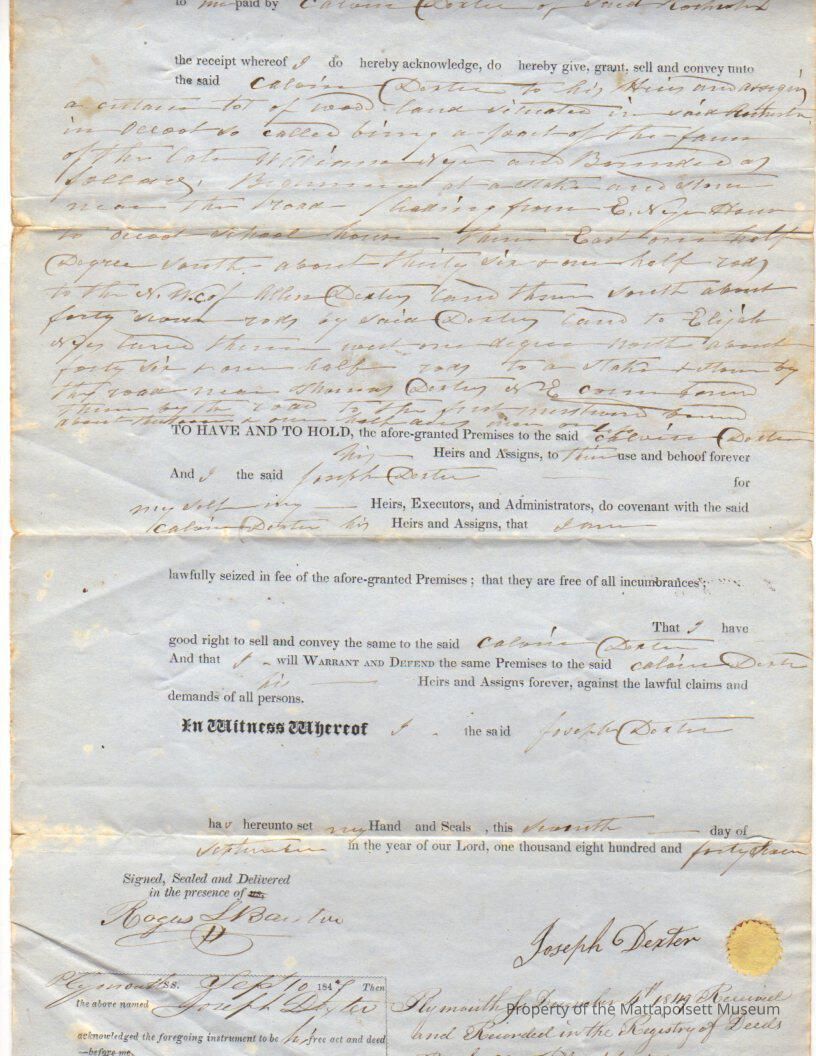 to me paid by Calvin Dexter of said Rochester
the receipt whereof I do hereby acknowledge, do hereby give, grant, sell and convey unto
the said Calvin Dexter to his Heirs and assigns
a certain lot of wood land situated in said Rochester
in so called being a part of the farm
of the late William Nye and Bounded as
follows, Beginning at a Stake and Stone
near the Road leading from E. Nye House
to School house thence East one half
Degree South about thirty six & one half rods
to the N. W. c of Allen Dexters land thence South about
forty seven rods by said Dexters land to Elijah
Nyes land thence west one degree north about
forty six & one half rods to a Stake & Stone by
the road near Thomas Dexters N E corner bound
thence by the road to the first mentioned bound
about and one half acres more or
TO HAVE AND TO HOLD, the afore-granted Premises to the said Calvin Dexter
his Heirs and Assigns, to their use and behoof forever
And I the said Joseph Dexter for
my self my Heirs, Executors, and Administrators, do covenant with the said
Calvin Dexter his Heirs and Assigns, that I am
lawfully seized in fee of the afore-granted Premises; that they are free of all incumbrances;
That I have
good right to sell and convey the same to the said Calvin Dexter
And that I will WARRANT AND DEFEND the same Premises to the said Calvin Dexter
his Heirs and Assigns forever, against the lawful claims and
demands of all persons.
In Witness Whereof I the said Joseph Dexter
hav hereunto set my Hand and Seals, this seventh day of
September in the year of our Lord, one thousand eight hundred and forty seven
Signed, Sealed and Delivered
in the presence of us,
Rogers L Barstow
Joseph Dexter
Plymouth SS. Sept 10 1847 Then
the above named Joseph Dexter
acknowledged the foregoing instrument to be his free act and deed
—before me,
Plymouth Ss. December 4th 1849 Received
and Recorded in the Registry of Deeds
Property of the Mattapoisett Museum